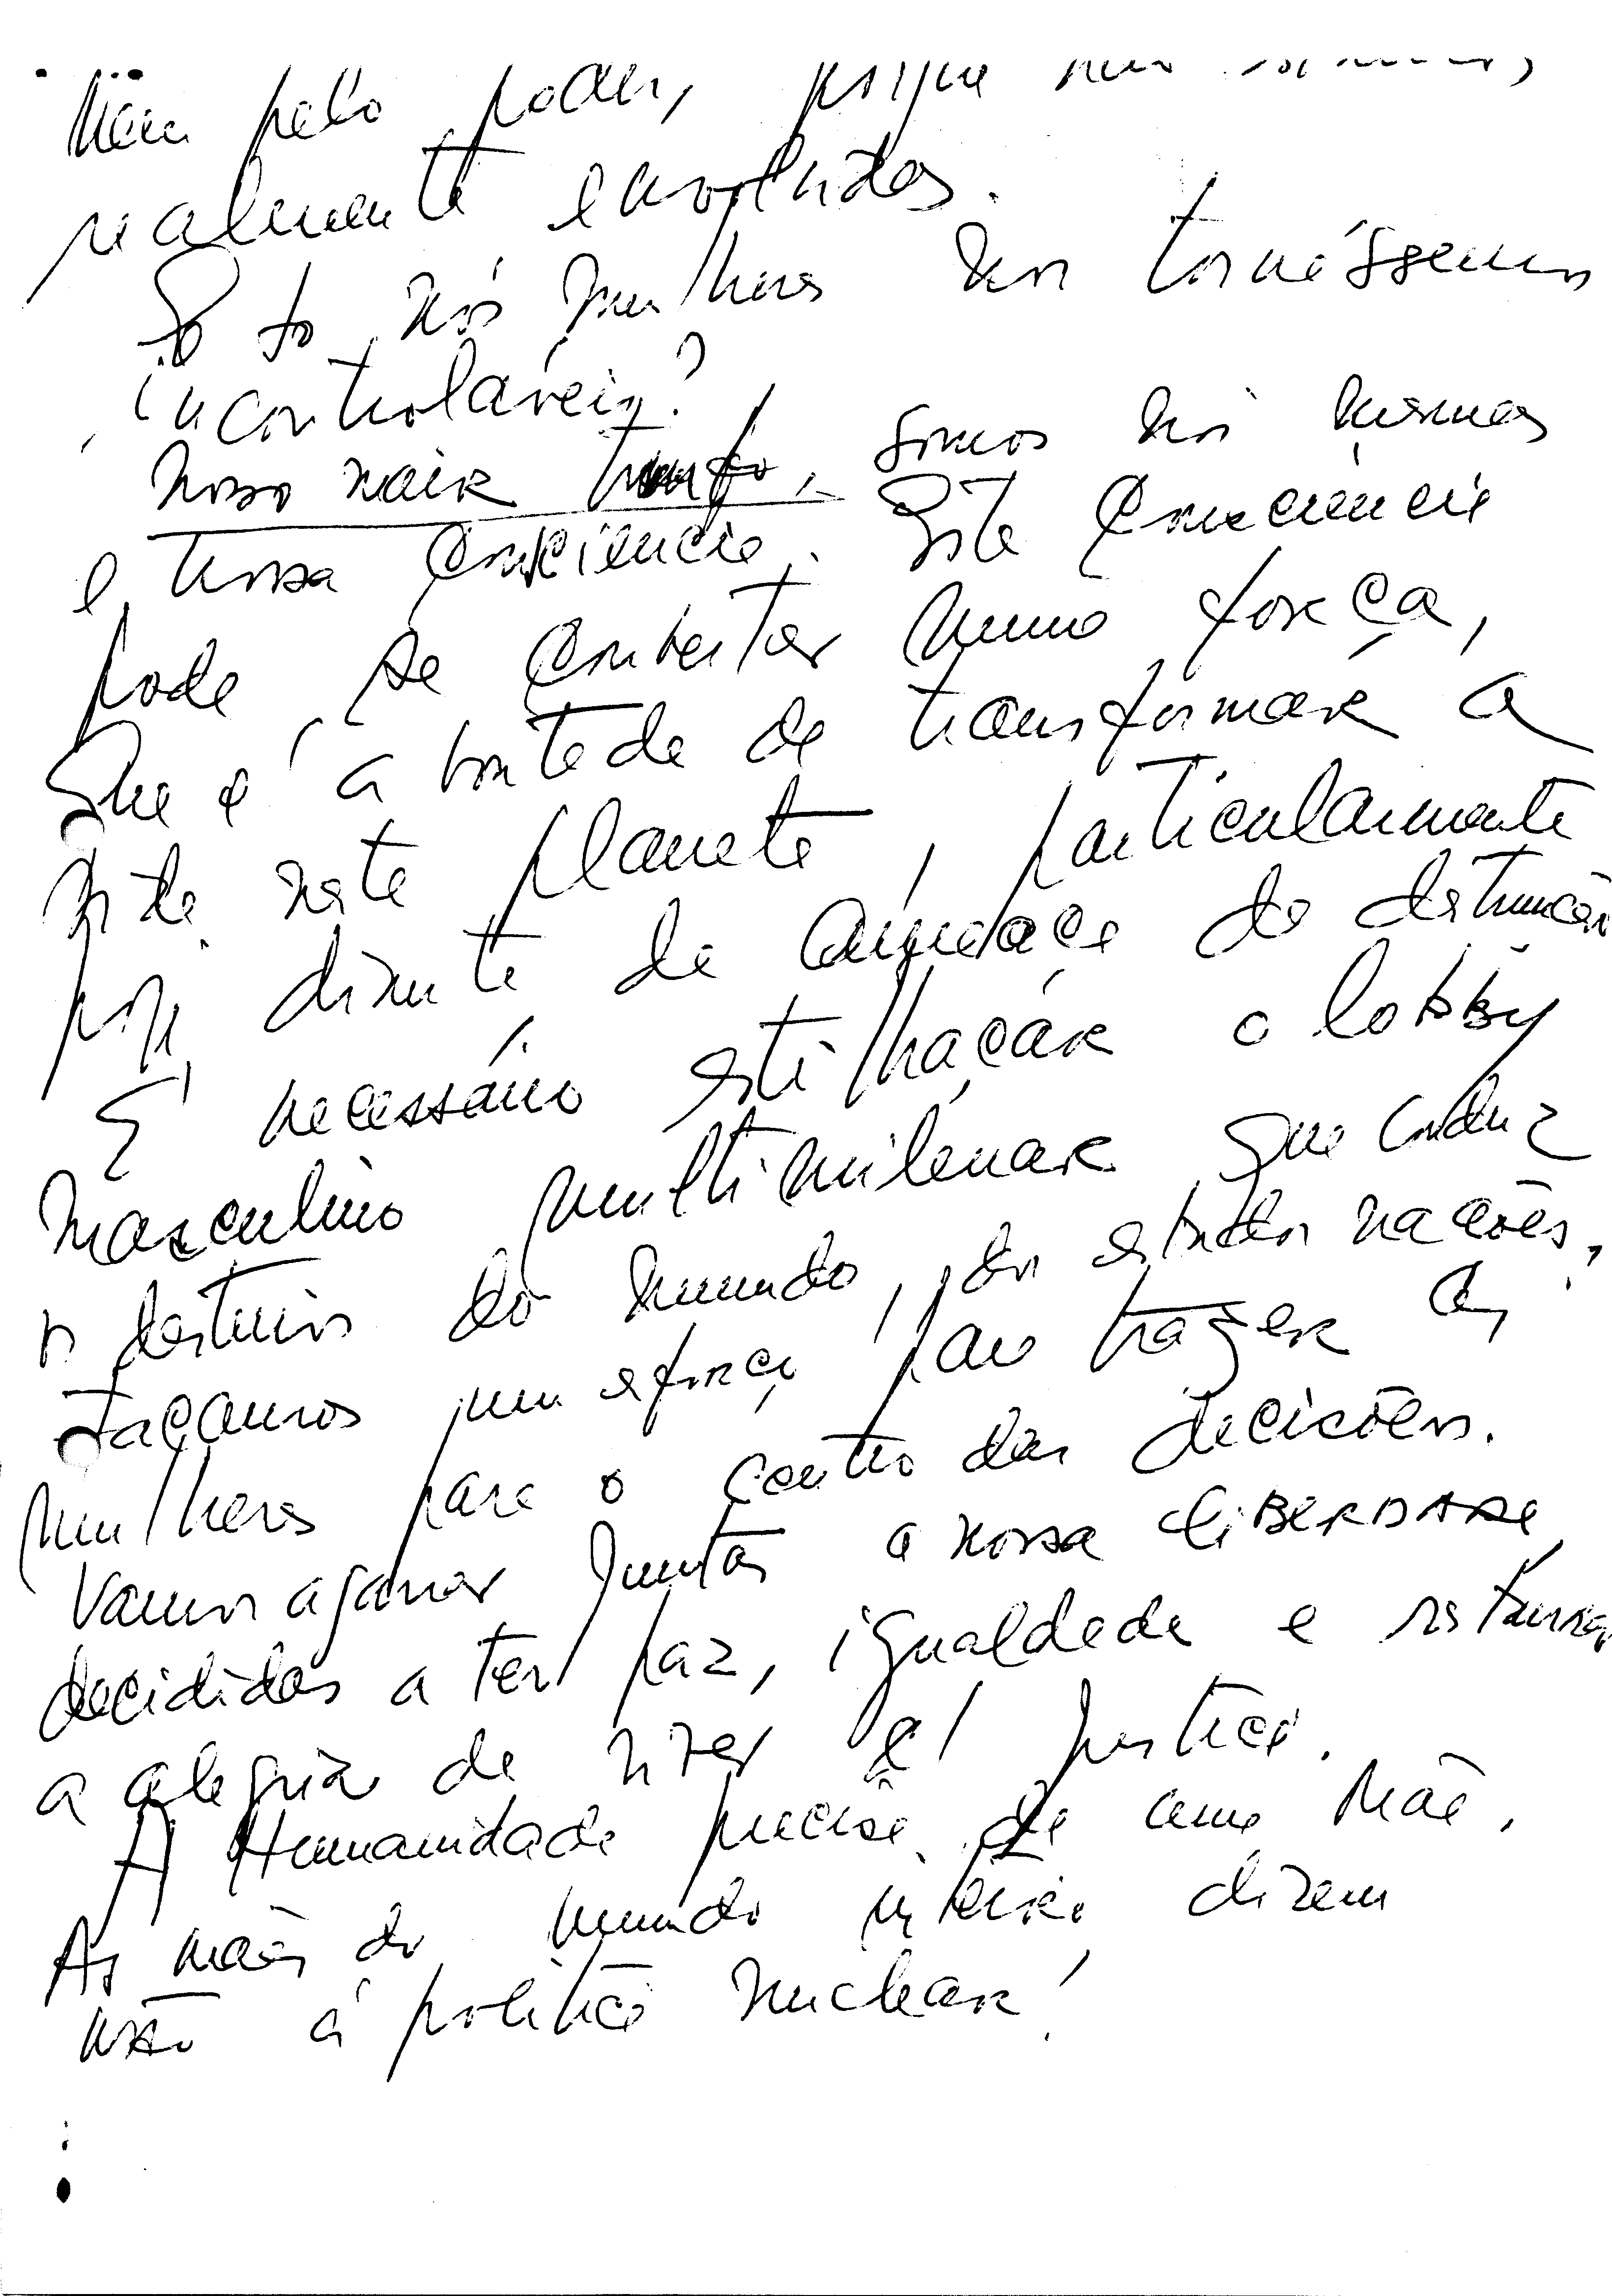 Nem pelo poder, porque não somos
realmente envolvidas.
E se nós mulheres nos tornássemos
incontroláveis?
Nosso maior trunfo, somos nós mesmas
e nossa consciência. Esta consciência
pode se converter numa força,
que é a vontade de transformar a
vida neste planeta, particularmente
hoje diante da ameaça da destruição
É necessário estilhaçar o lobby
masculino multimilenar que conduz
os destinos do mundo, dos estados nações,
Façamos um esforço para trazer as
mulheres para o centro das decisões.
Vamos agarrar juntas a nossa LIBERDADE
decididas a ter paz, igualdade e restaurar
a alegria de viver e justiça.
A Humanidade precisa de uma Mãe.
As mães do mundo inteiro dizem
não à política nuclear!